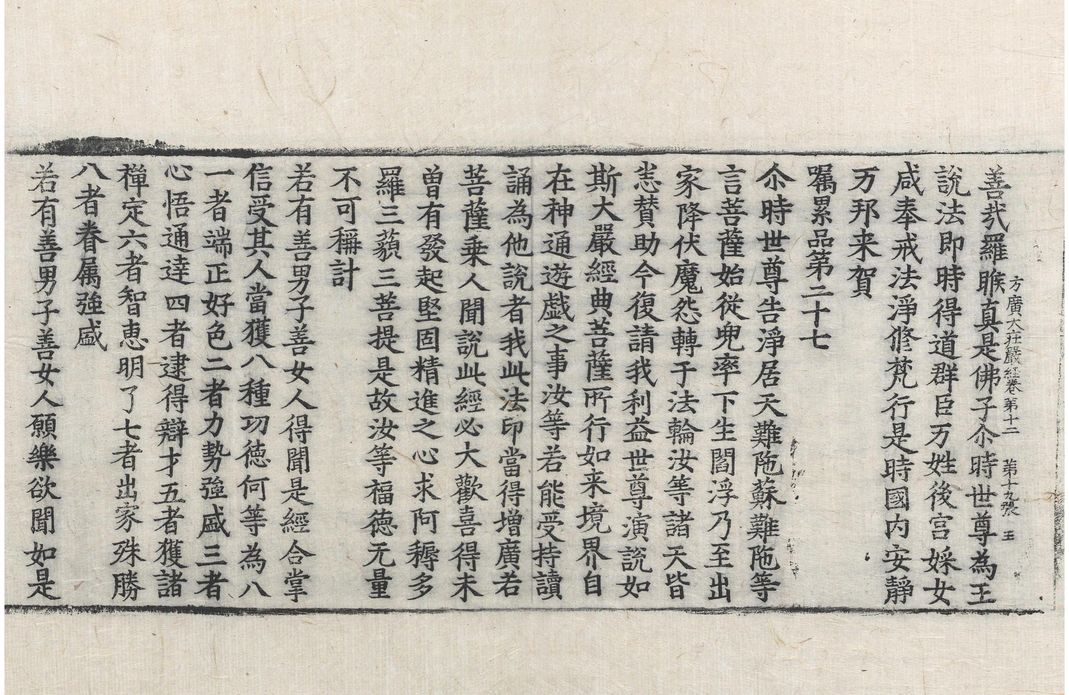 方廣大莊嚴經卷第十二 第十九張 王
善㢤羅睺真是佛子尒時世尊為王
說法即時得道群臣万姓後宮婇女
咸奉戒法淨修梵行是時國内安靜
万邦来賀
囑累品第二十七
尒時世尊告淨居天難陁蘇難陁等
言菩薩始從兜率下生閻浮乃至出
家降伏魔怨轉于法輪汝等諸天皆
悉賛助今復請我利益世尊演說如
斯大嚴經典菩薩所行如来境界自
在神通遊戲之事汝等若能受持讀
誦為他說者我此法印當得增廣若
菩薩乗人聞說此經必大歡喜得未
曽有發起堅固精進之心求阿耨多
羅三藐三菩提是故汝等福德无量
不可稱計
若有善男子善女人得聞是經合掌
信受其人當獲八種功徳何等為八
一者端正好色二者力勢強盛三者
心悟通達四者逮得辯才五者獲諸
禪定六者智恵明了七者出家殊勝
八者眷属強盛
若有善男子善女人願樂欲聞如是